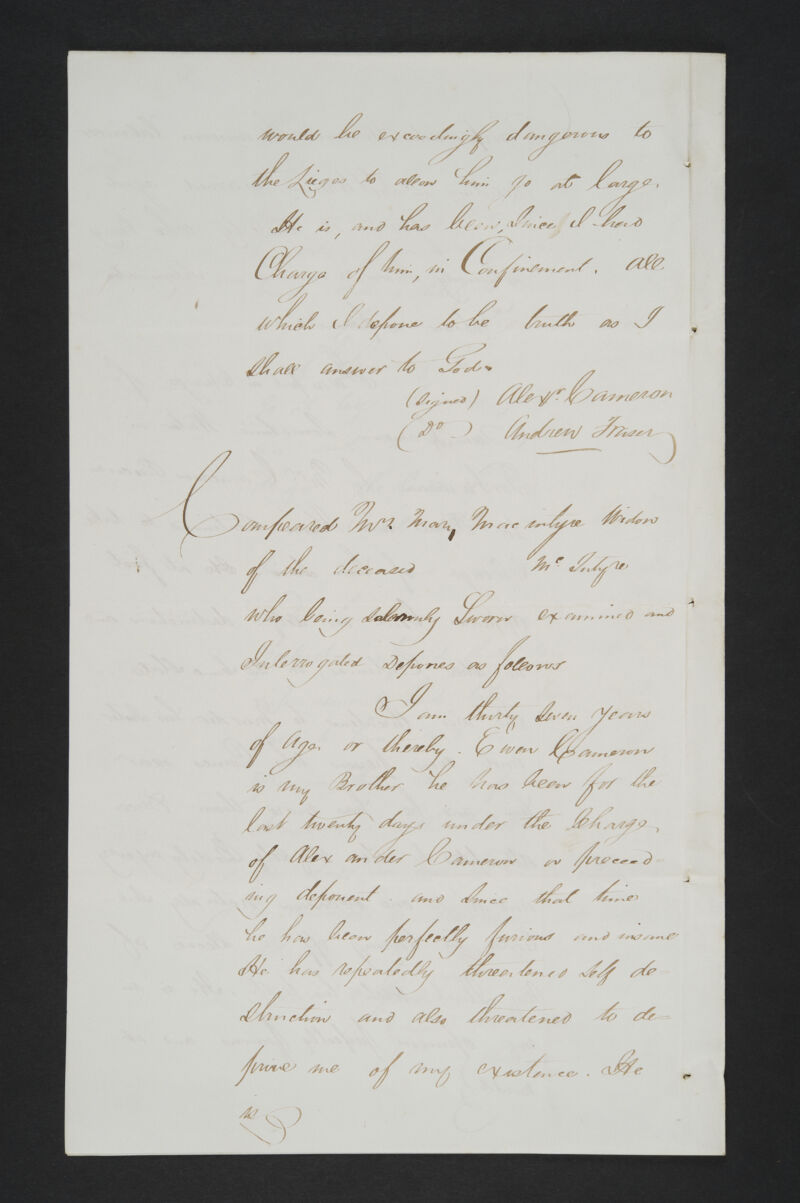 would be exceedingly dangerous to
the Lieges to allow him go at large.
He is, and has been, since I had
Charge of him, in Confinement. All
which I depone to be truth as I
shall answer to God.
(signed) Alexr. Cameron
(Do) Andrew Fraser
Compeared Mrs. Mary Macintyre Widow
of the deceased Mc Intyre
who being solemnly Sworn examined and
Interrogated Depones as follows
I am thirty seven years
of Age or thereby. Ewen Cameron
is my Brother he has been for the
last twenty days under the Charge
of Alexander Cameron a proceed
ing deponent and since that time
he has been perfectly furious and insane
He has repeatedly threatened self de-
struction and also threatened to de=
prive me of my existence. He
is